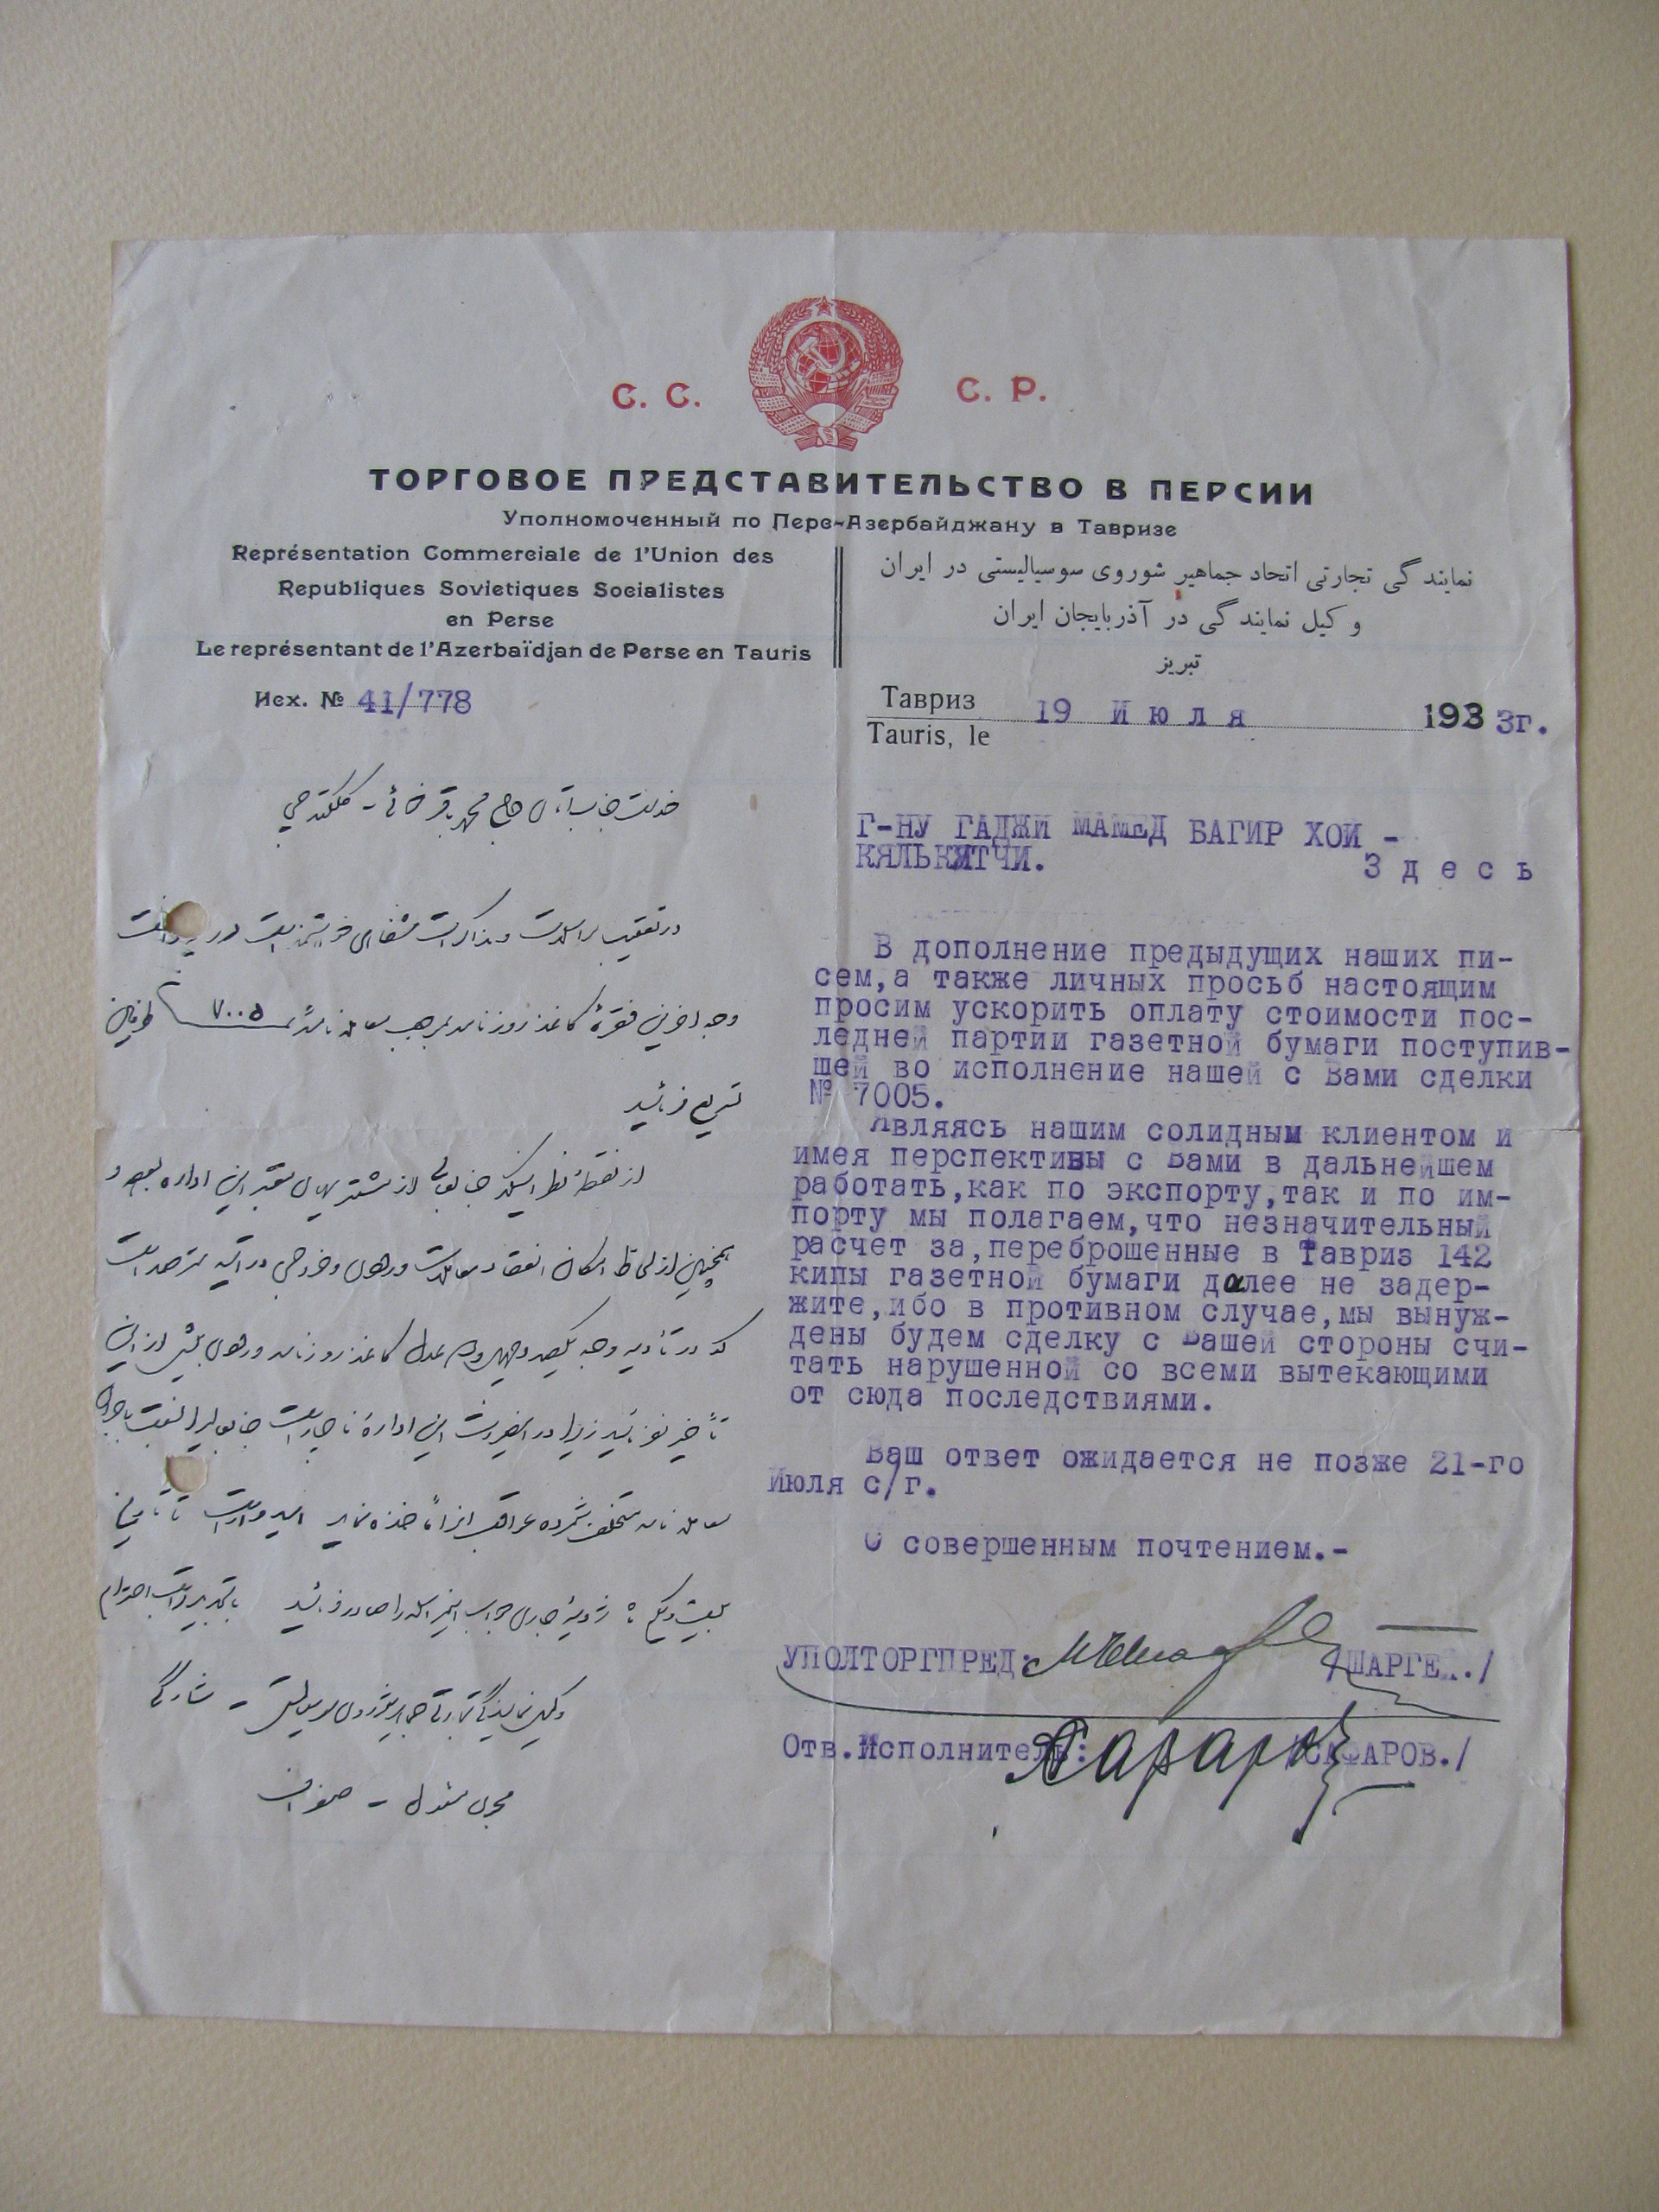 С. С. С. Р.
ТОРГОВОЕ ПРЕДСТАВИТЕЛЬСТВО В ПЕРСИИ
Уполномоченный по Перс-Азербайджану в Тавризе
Représentation Commerciale de l'Union des
Republiques Sovietiques Socialistes
en Perse
Le représentant de l'Azerbaïdjan de Perse en Tauris
نمایندگی تجارتی اتحاد جماهیر شوروی سوسیالیستی در ایران
وکیل نمایندگی در آذربایجان ایران
تبریز
Исх. № 41/778
Тавриз
Tauris, le
19 Июля 1933г.
خدمت جناب آقای حاج محمد باقر خوئی - کلکته چی
در تعقیب مراسلات و مذاکرات شفاهی خویش
وجه اخرین فقرهٔ کاغذ روزنامه بموجب معامله نامهٔ ۷۰۰۵
تسریع فرمائید
از نقطهٔ نظر اینکه جنابعالی از مشتریهای معتبر این اداره بوده و
همچنین از لحاظ امکان انعقاد معاملات ورودی و خروجی در آتیه
که در تأدیه وجه یکصد و چهل و دو عدل کاغذ روزنامه ورودی بیش از این
تأخیر نفرمائید زیرا در این اداره ناچار است جنابعالی را نسبت
معامله نامه متخلف شمرده عواقب امیدوار است تا تاریخ
بیست و یکم ژوئیه جاری جواب این مراسله را صادر فرمائید با تقدیم احترام
وکیل نمایندگی تجارتی جماهیر شوروی سوسیالیستی - شارگی
مجری مسئول - صفراف
Г-НУ ГАДЖИ МАМЕД БАГИР ХОИ -
КЯЛЬКЯТЧИ.
Здесь
В дополнение предыдущих наших пи-
сем,а также личных просьб настоящим
просим ускорить оплату стоимости пос-
ледней партии газетной бумаги поступив-
шей во исполнение нашей с Вами сделки
№ 7005.
Являясь нашим солидным клиентом и
имея перспективы с Вами в дальнейшем
работать,как по экспорту,так и по им-
порту мы полагаем,что незначительный
расчет за,переброшенные в Тавриз 142
кипы газетной бумаги далее не задер-
жите,ибо в противном случае,мы вынуж-
дены будем сделку с Вашей стороны счи-
тать нарушенной со всеми вытекающими
от сюда последствиями.
Ваш ответ ожидается не позже 21-го
Июля с/г.
С совершенным почтением.-
УПОЛТОРГПРЕД: /ШАРГЕЙ./
Отв.Исполнитель: Сафаров /САФАРОВ./